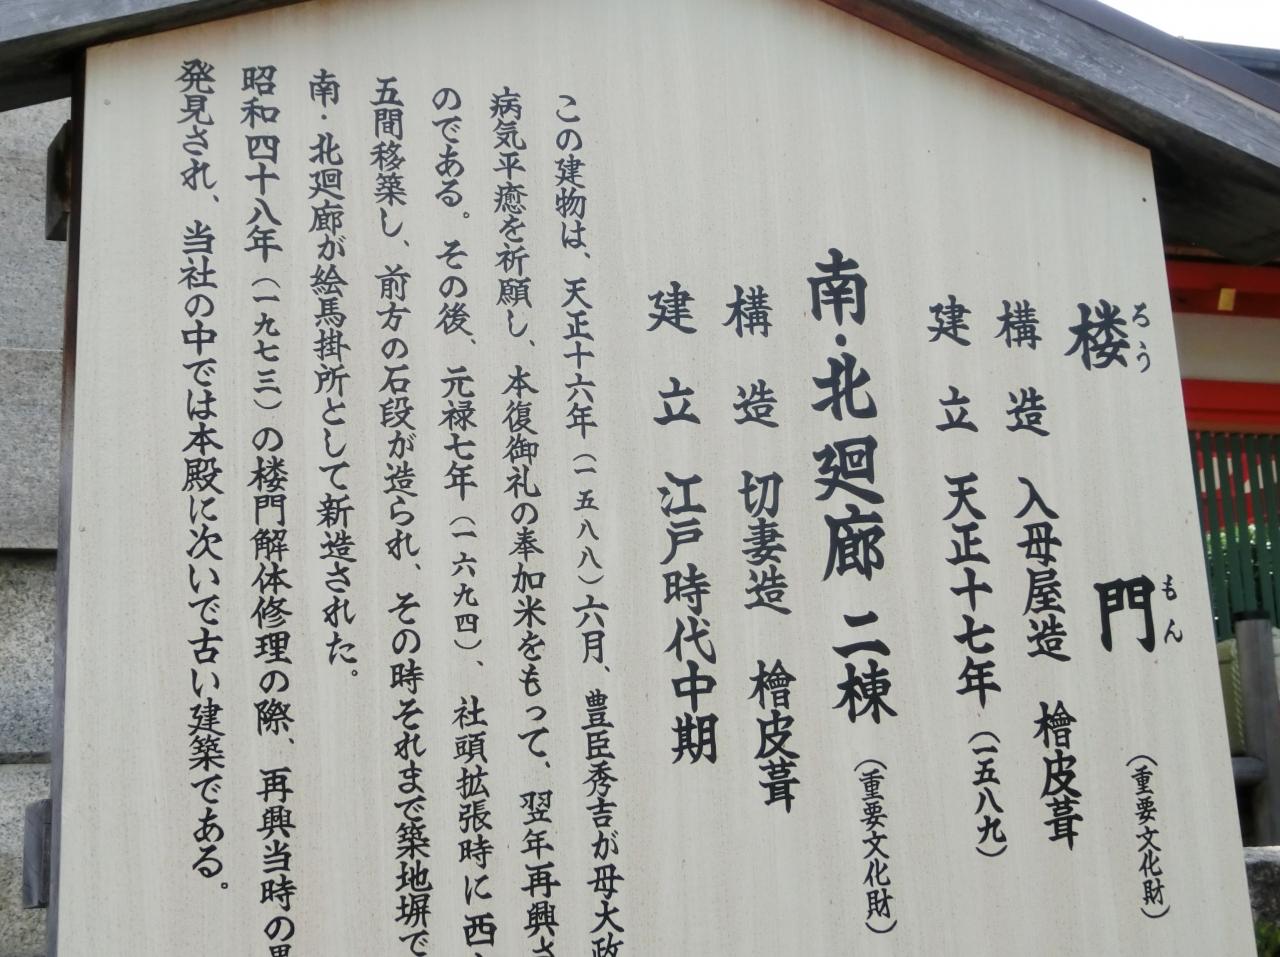 楼門
ろうもん
（重要文化財）
構造 入母屋造 檜皮葺
建立 天正十七年（一五八九）
南・北廻廊 二棟（重要文化財）
構造 切妻造 檜皮葺
建立 江戸時代中期
この建物は、天正十六年（一五八八）六月、豊臣秀吉が母大政
病気平癒を祈願し、本復御礼の奉加米をもって、翌年再興さ
のである。その後、元禄七年（一六九四）、社頭拡張時に西
五間移築し、前方の石段が造られ、その時それまで築地塀で
南・北廻廊が絵馬掛所として新造された。
昭和四十八年（一九七三）の楼門解体修理の際、再興当時の
発見され、当社の中では本殿に次いで古い建築である。